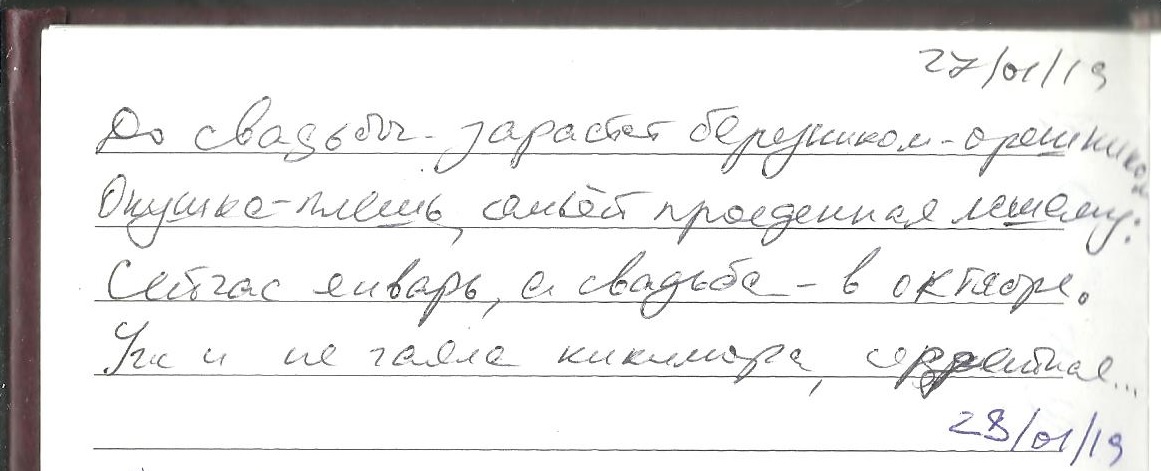 27/01/19
До свадьбы - зарастёт березником-орешником
Опушка-плешь, семьёй проеденная лешему:
Сейчас январь, а свадьба - в октябре.
Уж и не чаяла кикимора, сердешная...
28/01/19